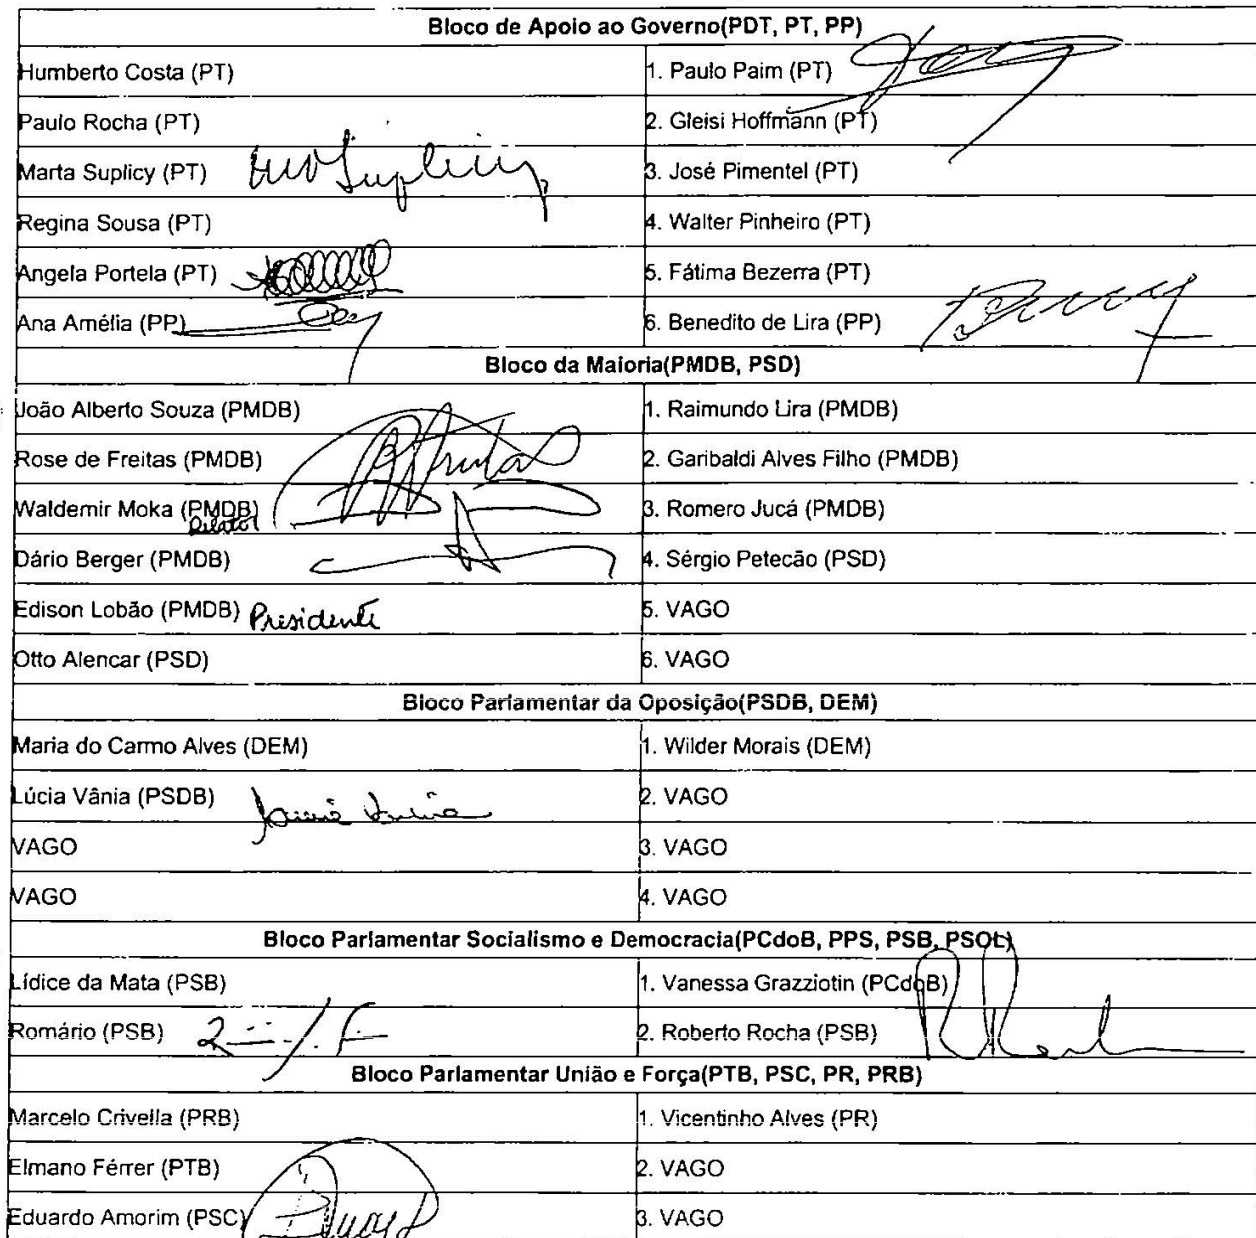 Bloco de Apoio ao Governo(PDT, PT, PP)
Humberto Costa (PT) 1. Paulo Paim (PT)
Paulo Rocha (PT) 2. Gleisi Hoffmann (PT)
Marta Suplicy (PT) Suplicy 3. José Pimentel (PT)
Regina Sousa (PT) 4. Walter Pinheiro (PT)
Angela Portela (PT) 5. Fátima Bezerra (PT)
Ana Amélia (PP) 6. Benedito de Lira (PP)
Bloco da Maioria(PMDB, PSD)
João Alberto Souza (PMDB) 1. Raimundo Lira (PMDB)
Rose de Freitas (PMDB) 2. Garibaldi Alves Filho (PMDB)
Waldemir Moka (PMDB) 3. Romero Jucá (PMDB)
Relator
Dário Berger (PMDB) 4. Sérgio Petecão (PSD)
Edison Lobão (PMDB) Presidente 5. VAGO
Otto Alencar (PSD) 6. VAGO
Bloco Parlamentar da Oposição(PSDB, DEM)
Maria do Carmo Alves (DEM) 1. Wilder Morais (DEM)
Lúcia Vânia (PSDB) 2. VAGO
VAGO 3. VAGO
VAGO 4. VAGO
Bloco Parlamentar Socialismo e Democracia(PCdoB, PPS, PSB, PSOL)
Lídice da Mata (PSB) 1. Vanessa Grazziotin (PCdoB)
Romário (PSB) 2. Roberto Rocha (PSB)
Bloco Parlamentar União e Força(PTB, PSC, PR, PRB)
Marcelo Crivella (PRB) 1. Vicentinho Alves (PR)
Elmano Férrer (PTB) 2. VAGO
Eduardo Amorim (PSC) 3. VAGO